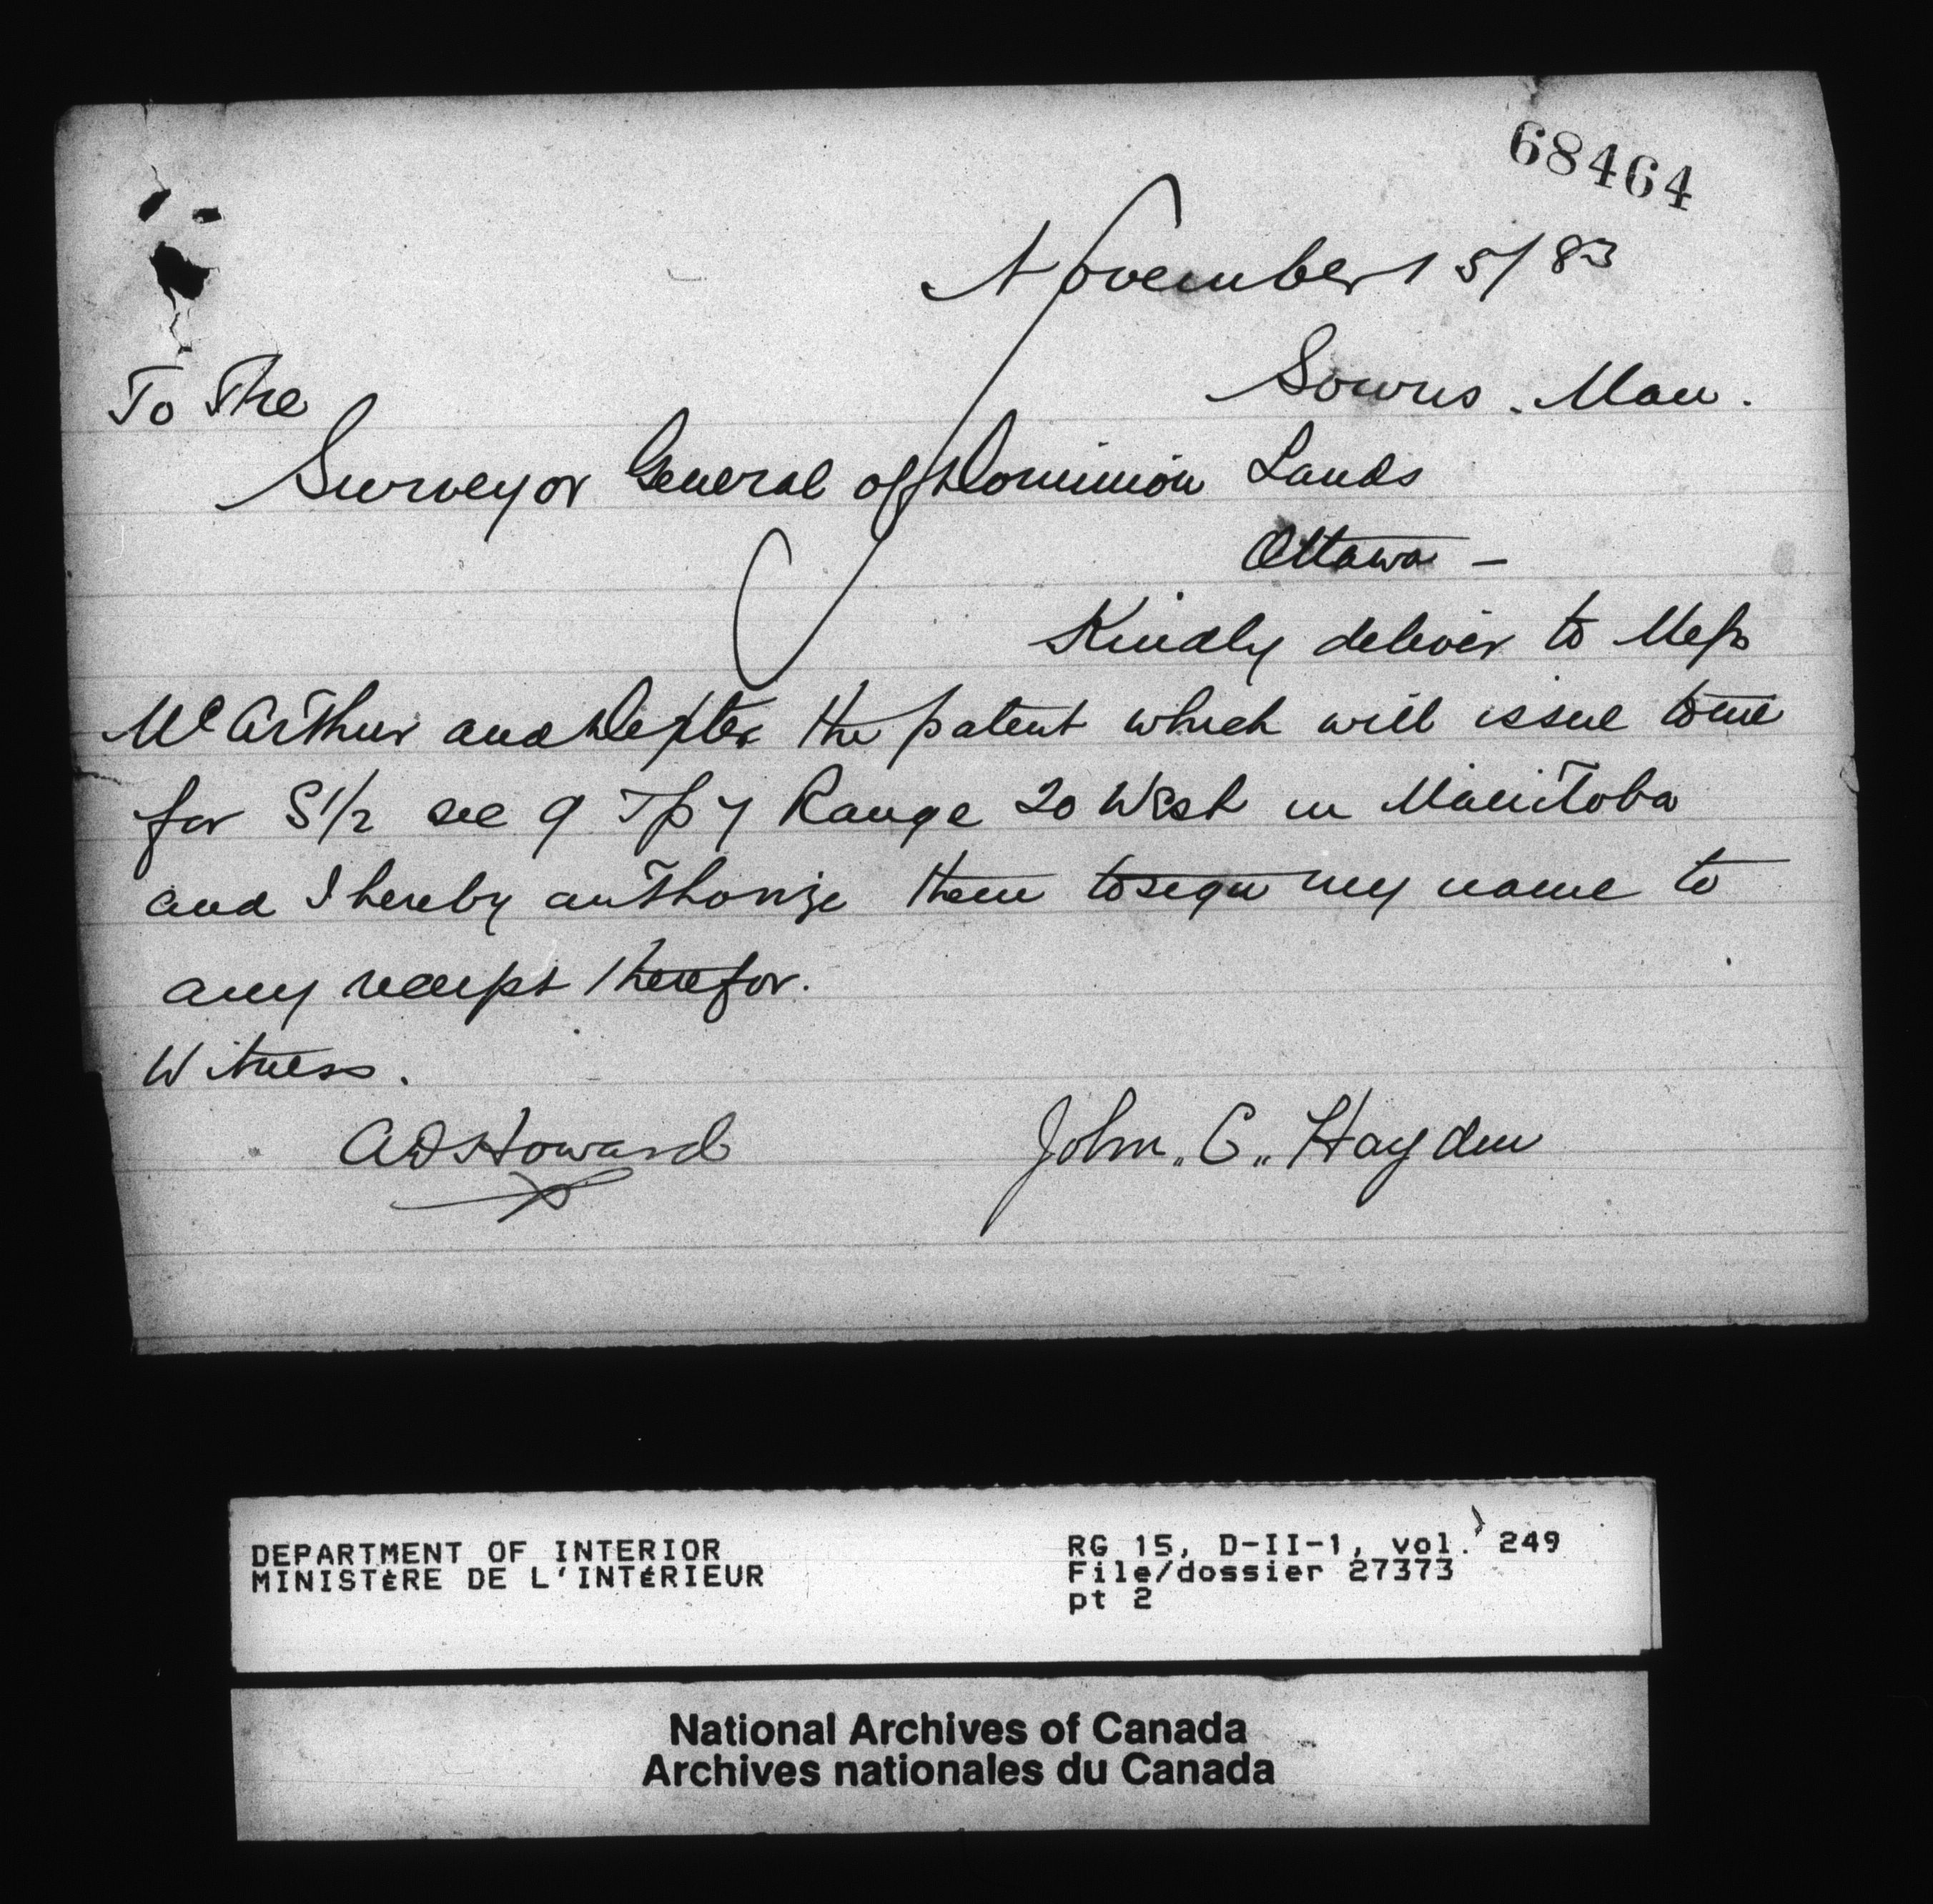 68464
November 15/83
Sowris. Man.
To The
Surveyor General of Dominion Lands
Ottawa –
Kindly deliver to Mess
McArthur and Dexter the patent which will issue to me
for S 1/2 sec 9 Tp 7 Range 20 West in Manitoba
and I hereby authorize them to sign my name to
any receipt therefor.
Witness.
A D Howard
John „ C „ Hayden
DEPARTMENT OF INTERIOR
MINISTÈRE DE L'INTÉRIEUR
RG 15, D-II-1, vol. 249
File/dossier 27373
pt 2
National Archives of Canada
Archives nationales du Canada